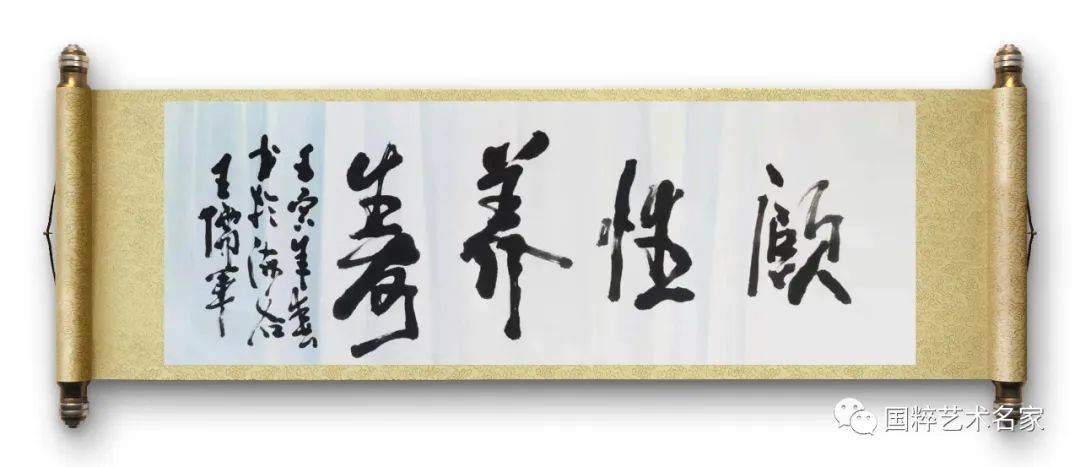 頤性养寿
壬寅年春
书於
王儒军
国粹艺术名家